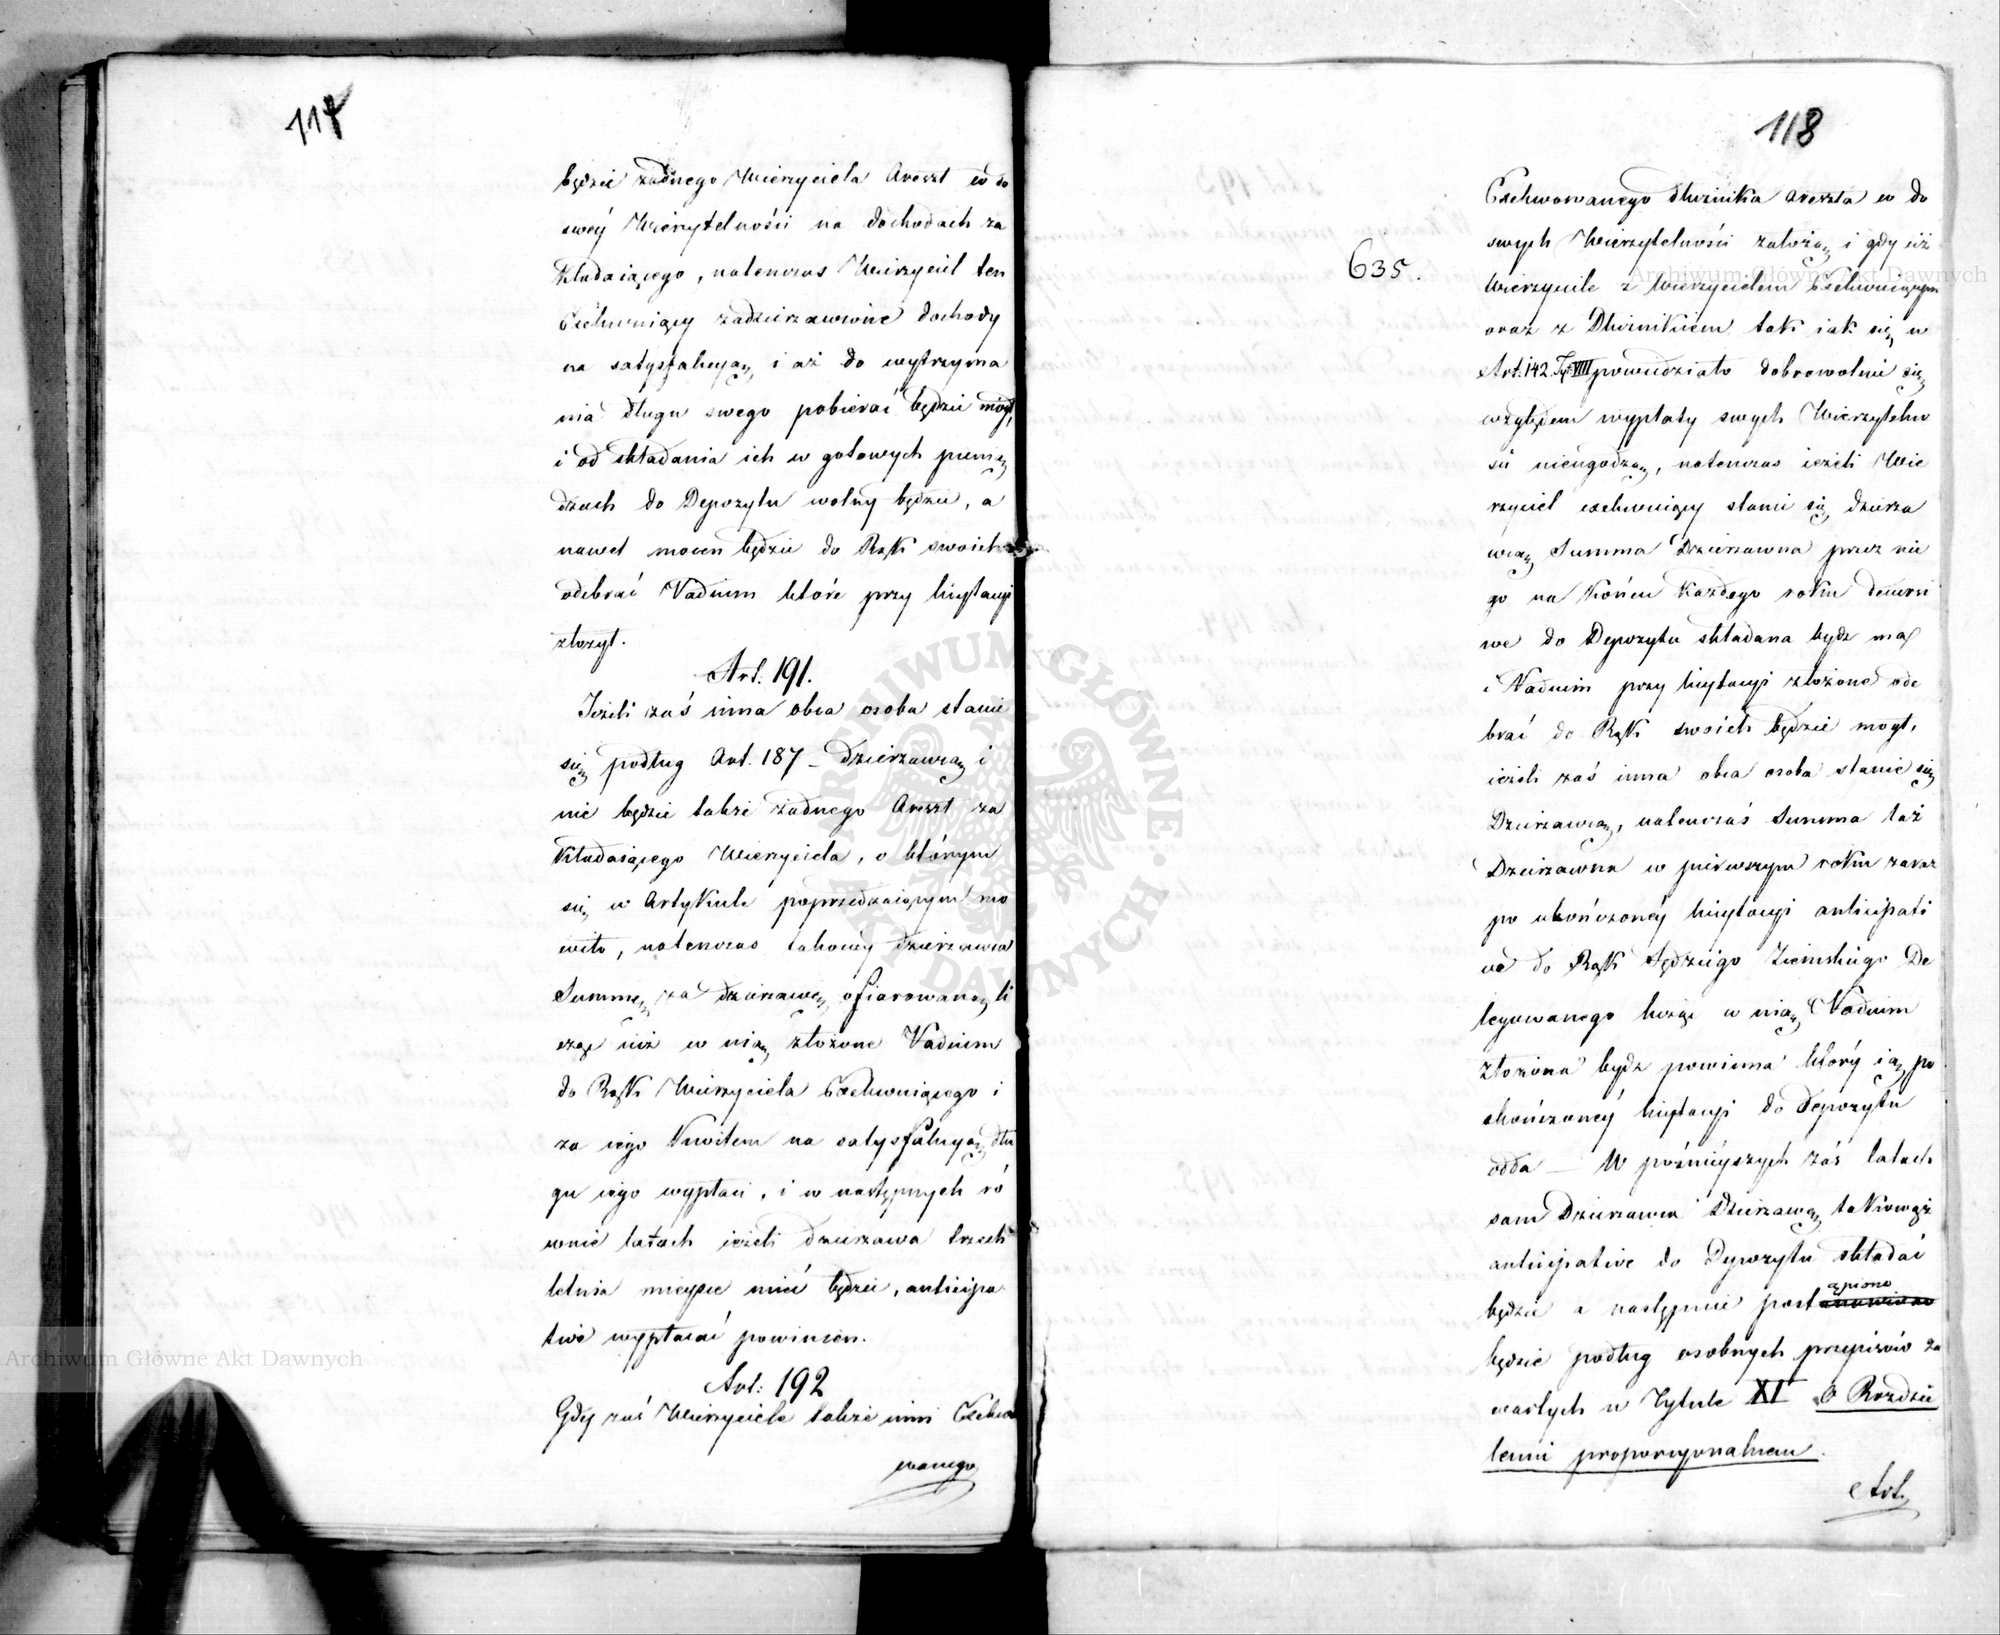 117
będzie żadnego Wierzyciela Areszt co do
swey Wierzytelności na dochodach za
kładaiącego, natenczas Wierzyciel ten
Exekwuiący zadzierzawione dochody
na satysfakcyą, i aż do wytrzyma
nia długu swego pobierać będzie mógł,
i od składania ich w gotowych pienią
dzach do Depozytu wolny będzie, a
nawet mocen będzie do Rąk swoich
odebrać Vadium które przy licytacyi
złożył.
Art. 191.
Jeżeli zaś inna obca osoba stanie
się podług Art. 187 – dzierzawcą i
nie będzie także żadnego Areszt za
kładaiącego Wierzyciela, o którym
się w Artykule poprzedzaiącym mo
wiło, natenczas takowy dzierzawca
Summę za dzierzawę ofiarowaną li
cząc iuż w nią złożone Vadium
do Rąk Wierzyciela Exekwuiącego i
za iego Kwitem na satysfakcyą dłu
gu iego wypłaci, i w następnych ró
wnie latach ieżeli dzierzawa trzech
letnia mieysce mieć będzie, anticipa
tive wypłacać powinien.
Art: 192
Gdy zaś Wierzyciele także inni Exekwo
wanego
118
Exekwowanego dłużnika areszta co do
swych Wierzytelności założą, i gdy ciż
635.
Wierzyciele z Wierzycielem Exekwuiącym
oraz z Dłużnikiem tak iak się w
Art. 142. Tyt VIII powiedziało dobrowolnie się
względem wypłaty swych Wierzytelno
ści nieugodzą, natenczas ieżeli Wie
rzyciel exekwuiący stanie się dzierza
wcą Summa Dzierzawna przez nie
go na końcu każdego roku decursi
ve do Depozytu składana bydź ma
i Vadium przy licytacyi złożone ode
brać do Rąk swoich będzie mógł,
ieżeli zaś inna obca osoba stanie się
Dzierzawcą, natenczas Summa taż
Dzierzawna w pierwszym roku zaraz
po ukończoney licytacyi anticipati
ve do Rąk Sędziego Ziemskiego De
legowanego licząc w nią Vadium
złożona bydź powinna który ią po
skończoney licytacyi do Depozytu
odda — W poźnieyszych zaś latach
sam Dzierzawca Dzierzawę takowąż
anticipative do Depozytu składać
ąpiono
będzie a następnie postanowiono
będzie podług osobnych przepisów za
wartych w Tytule XI O Rozdzie
leniu proporcyonalnem.
Art.